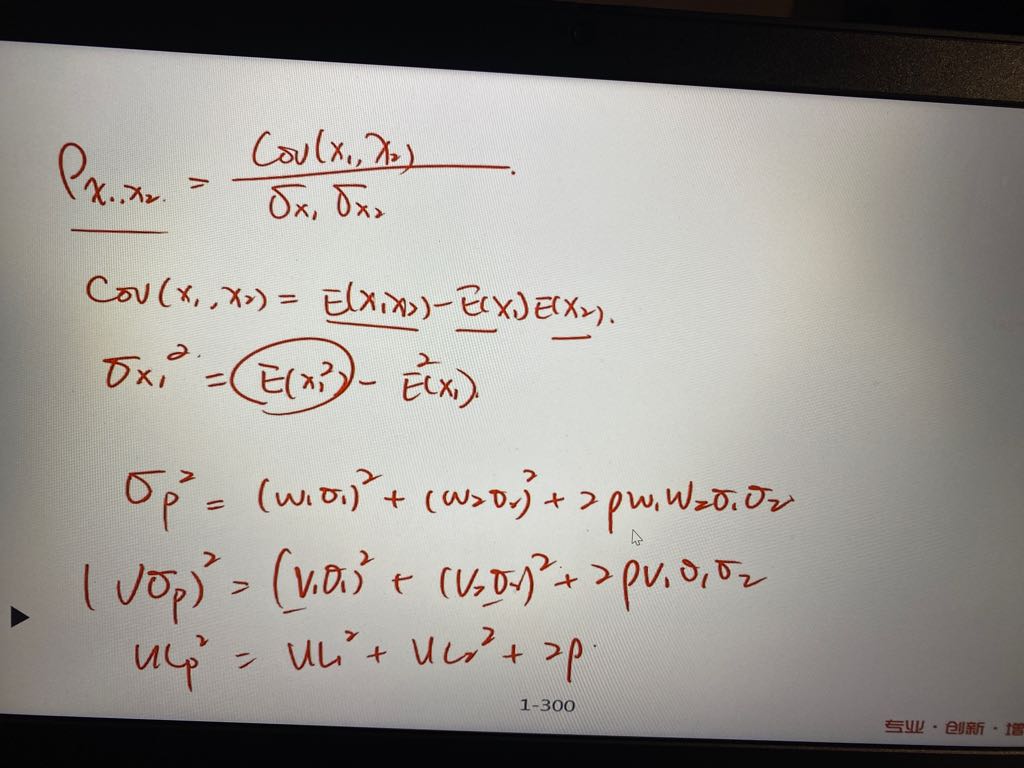 ρx₁,x₂ = Cov(x₁,x₂) / σx₁ σx₂
Cov(x₁,x₂) = E(x₁x₂) - E(x₁)E(x₂).
σx₁² = E(x₁²) - E²(x₁).
σp² = (w₁σ₁)² + (w₂σ₂)² + 2ρw₁w₂σ₁σ₂
(Vσp)² = (V₁σ₁)² + (V₂σ₂)² + 2ρV₁σ₁σ₂
ULp² = UL₁² + UL₂² + 2ρ
1-300
专业·创新·增